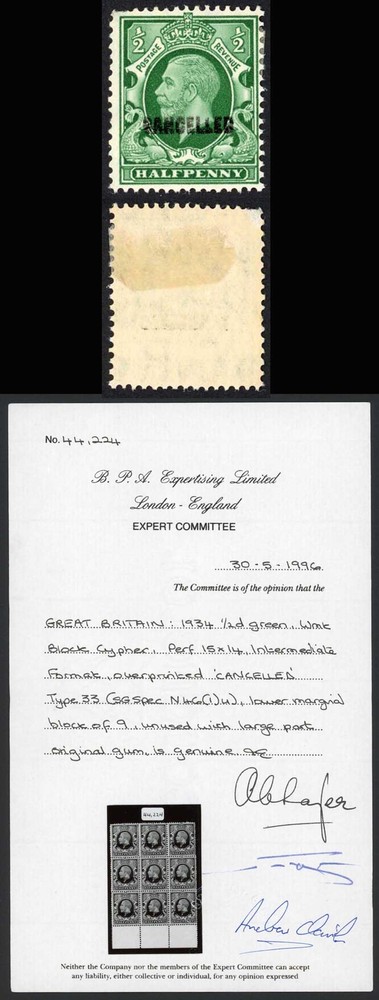 1/2 1/2
POSTAGE REVENUE
CANCELLED
HALFPENNY
No. 44,224
B. P. A. Expertising Limited
London - England
EXPERT COMMITTEE
30-5-1996
The Committee is of the opinion that the
GREAT BRITAIN: 1934 ½d green, Wmk
Block Cypher, Perf 15x14, Intermediate
Format, overprinted 'CANCELLED'
Type 33 (SG Spec N46(1)u), lower marginal
block of 9, unused with large part
original gum, is genuine
44,224
Neither the Company nor the members of the Expert Committee can accept
any liability, either collective or individual, for any opinion expressed